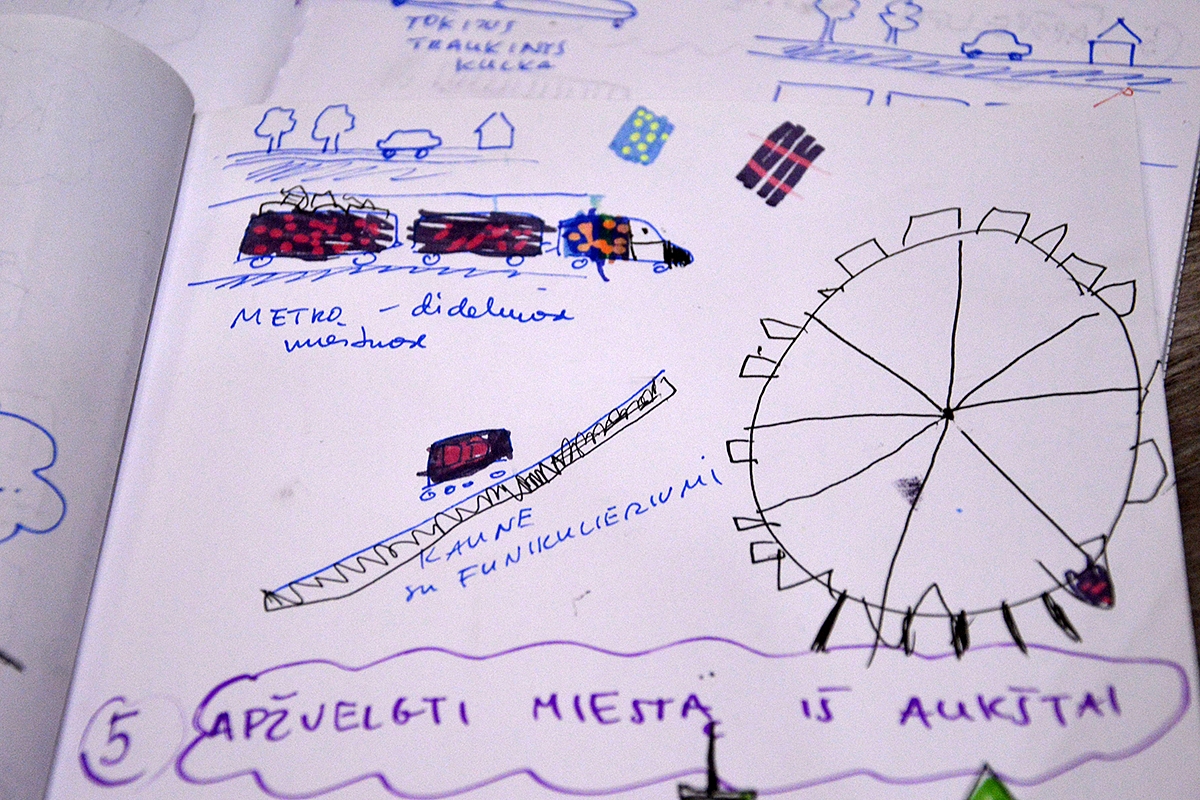 TOKIJUS
TRAUKINYS
KULKA
METRO - didelniuose
miestuose
KAUNE
su FUNIKULIERIUMI
5 APŽVELGTI MIESTĄ IŠ AUKŠTAI